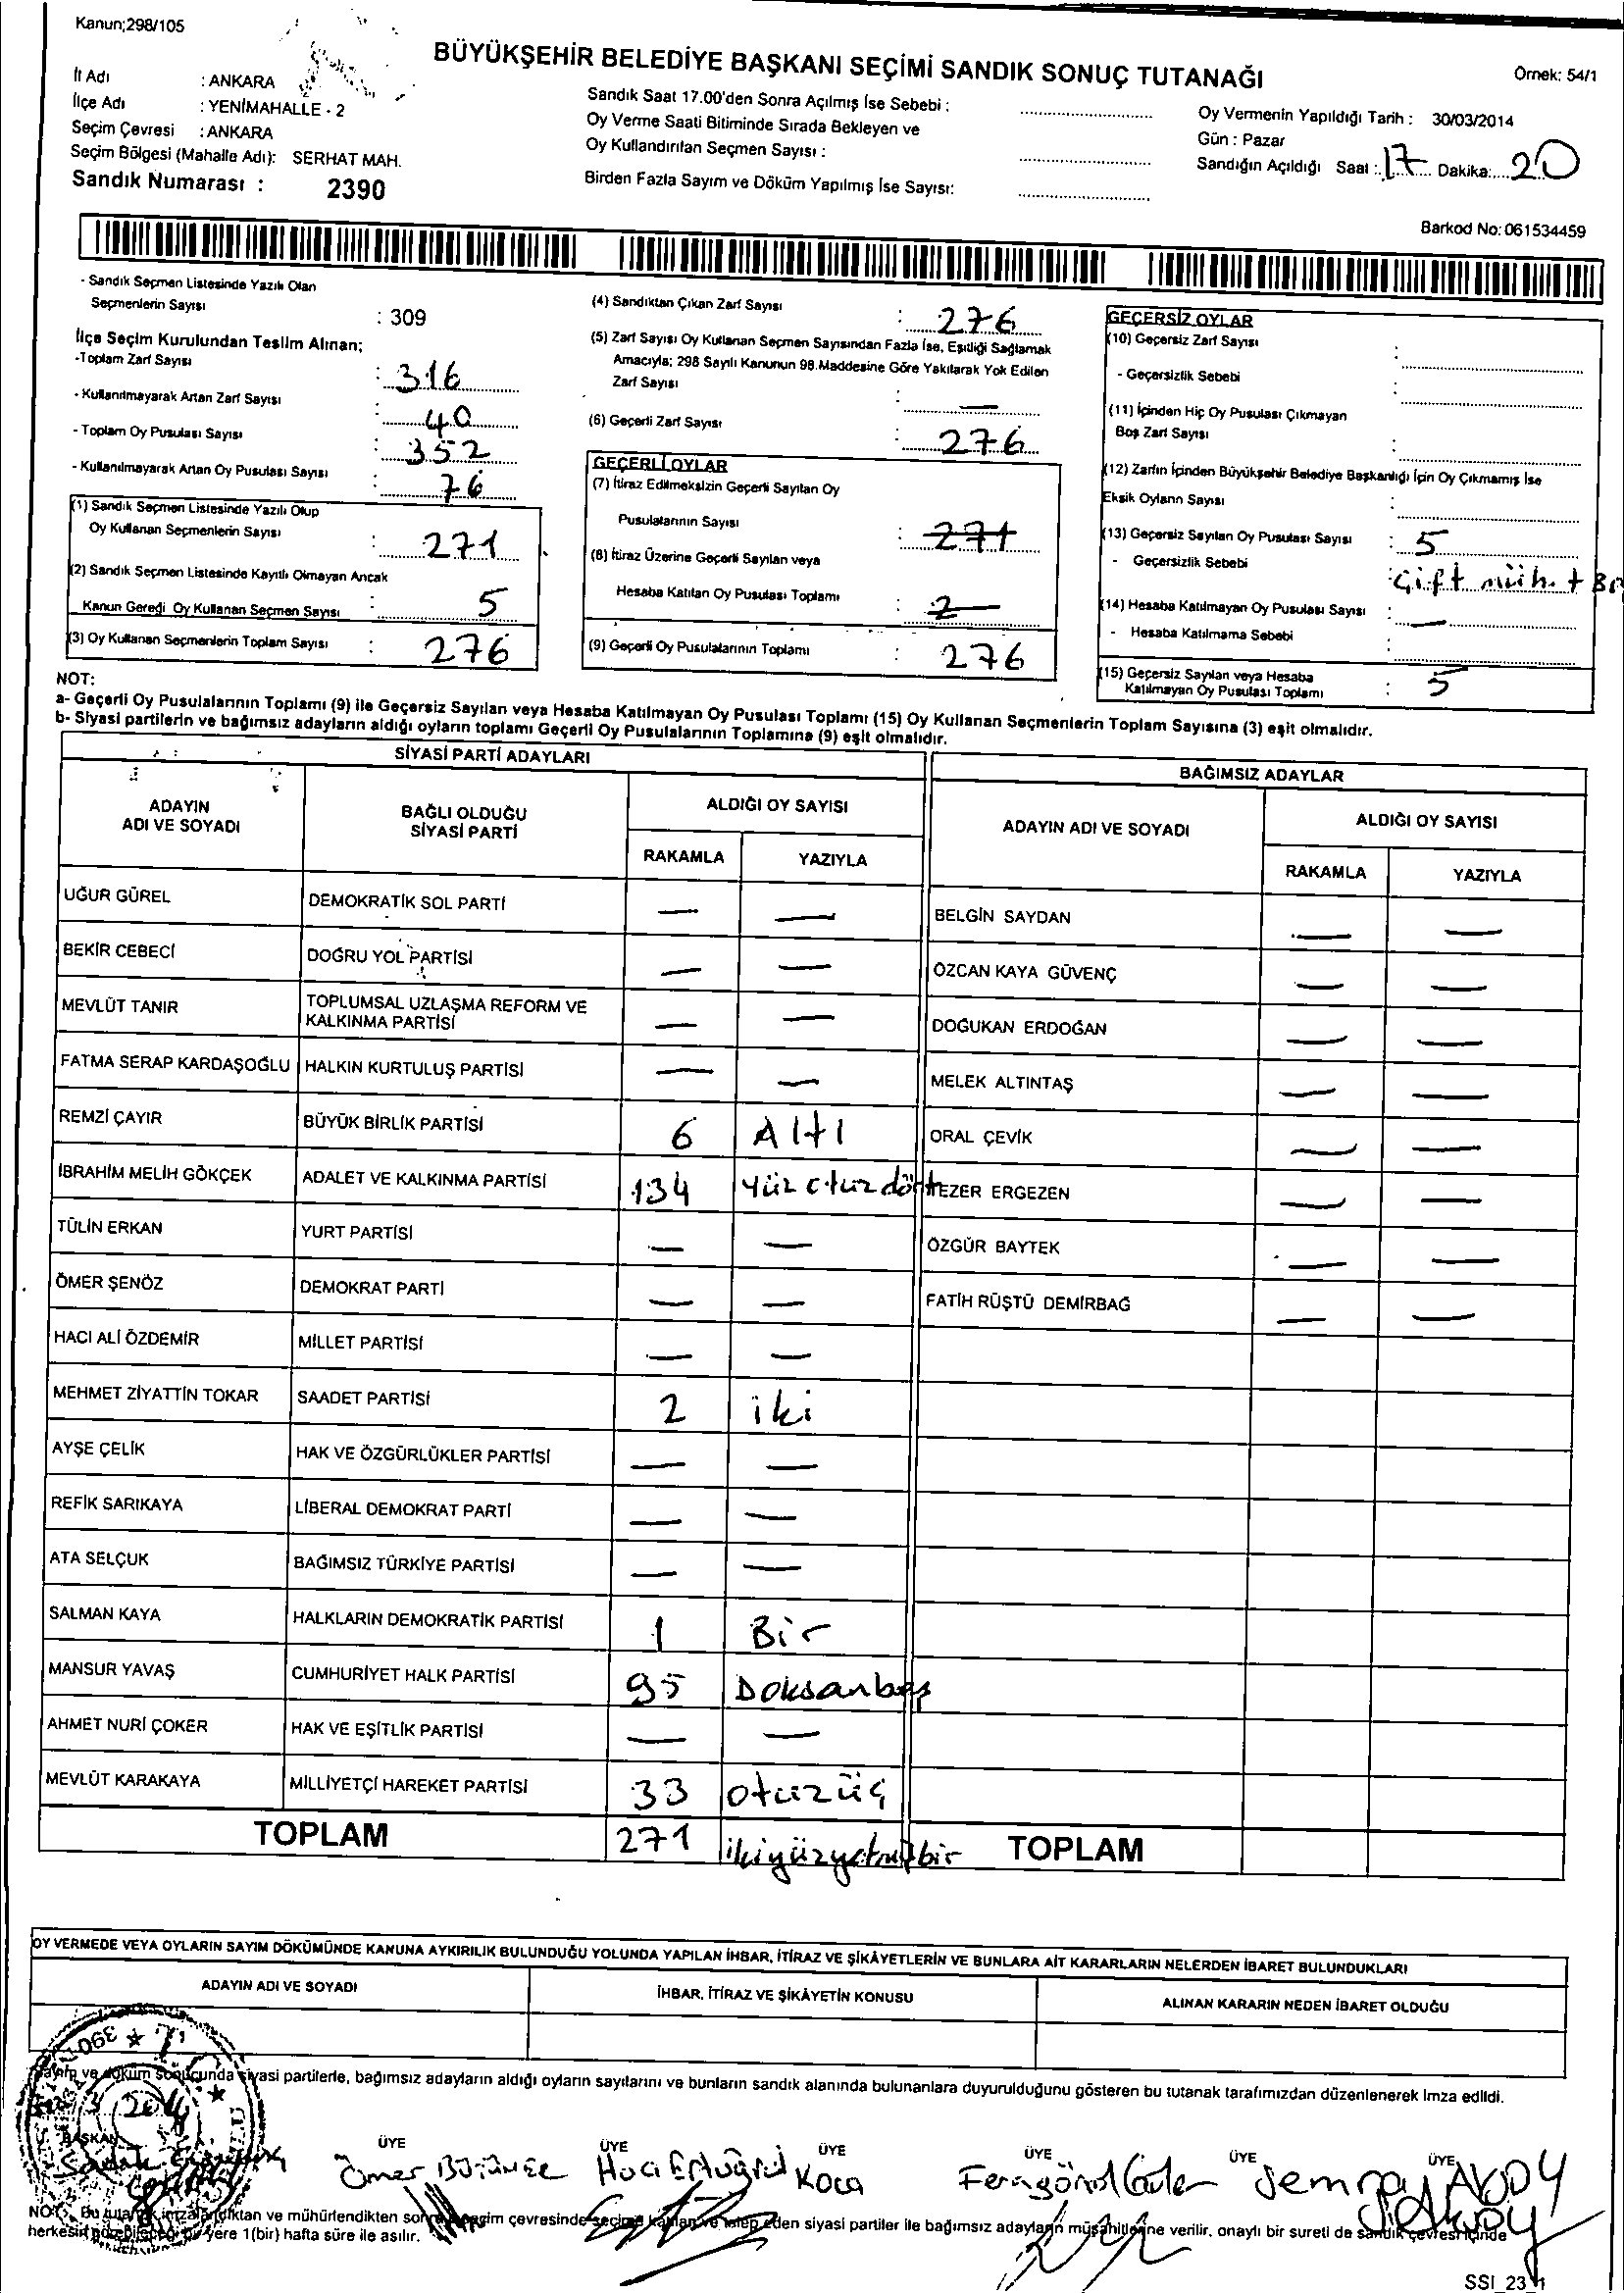 Kanun;298/105
BÜYÜKŞEHİR BELEDİYE BAŞKANI SEÇİMİ SANDIK SONUÇ TUTANAĞI
Örnek: 54/1
İl Adı : ANKARA
İlçe Adı : YENİMAHALLE - 2
Seçim Çevresi : ANKARA
Seçim Bölgesi (Mahalle Adı): SERHAT MAH.
Sandık Numarası : 2390
Sandık Saat 17.00'den Sonra Açılmış İse Sebebi :
Oy Verme Saati Bitiminde Sırada Bekleyen ve
Oy Kullandırılan Seçmen Sayısı :
Birden Fazla Sayım ve Döküm Yapılmış İse Sayısı:
Oy Vermenin Yapıldığı Tarih : 30/03/2014
Gün : Pazar
Sandığın Açıldığı Saat : 17 Dakika: 20
Barkod No: 061534459
- Sandık Seçmen Listesinde Yazılı Olan
Seçmenlerin Sayısı : 309
İlçe Seçim Kurulundan Teslim Alınan;
-Toplam Zarf Sayısı : 316
- Kullanılmayarak Artan Zarf Sayısı : 40
- Toplam Oy Pusulası Sayısı : 352
- Kullanılmayarak Artan Oy Pusulası Sayısı : 76
(1) Sandık Seçmen Listesinde Yazılı Olup
Oy Kullanan Seçmenlerin Sayısı : 271
(2) Sandık Seçmen Listesinde Kayıtlı Olmayan Ancak
Kanun Gereği Oy Kullanan Seçmen Sayısı : 5
(3) Oy Kullanan Seçmenlerin Toplam Sayısı : 276
(4) Sandıktan Çıkan Zarf Sayısı : 276
(5) Zarf Sayısı Oy Kullanan Seçmen Sayısından Fazla İse, Eşitliği Sağlamak
Amacıyla; 298 Sayılı Kanunun 98.Maddesine Göre Yakılarak Yok Edilen
Zarf Sayısı : —
(6) Geçerli Zarf Sayısı : 276
GEÇERLİ OYLAR
(7) İtiraz Edilmeksizin Geçerli Sayılan Oy
Pusulalarının Sayısı : 271
(8) İtiraz Üzerine Geçerli Sayılan veya
Hesaba Katılan Oy Pusulası Toplamı : 2
(9) Geçerli Oy Pusulalarının Toplamı : 276
GEÇERSİZ OYLAR
(10) Geçersiz Zarf Sayısı :
- Geçersizlik Sebebi :
(11) İçinden Hiç Oy Pusulası Çıkmayan
Boş Zarf Sayısı :
(12) Zarfın İçinden Büyükşehir Belediye Başkanlığı İçin Oy Çıkmamış İse
Eksik Oyların Sayısı :
(13) Geçersiz Sayılan Oy Pusulası Sayısı : 5
- Geçersizlik Sebebi : Çift müh. +
(14) Hesaba Katılmayan Oy Pusulası Sayısı : —
- Hesaba Katılmama Sebebi :
(15) Geçersiz Sayılan veya Hesaba
Katılmayan Oy Pusulası Toplamı : 5
NOT:
a- Geçerli Oy Pusulalarının Toplamı (9) ile Geçersiz Sayılan veya Hesaba Katılmayan Oy Pusulası Toplamı (15) Oy Kullanan Seçmenlerin Toplam Sayısına (3) eşit olmalıdır.
b- Siyasi partilerin ve bağımsız adayların aldığı oyların toplamı Geçerli Oy Pusulalarının Toplamına (9) eşit olmalıdır.
SİYASİ PARTİ ADAYLARI
ADAYIN ADI VE SOYADI BAĞLI OLDUĞU SİYASİ PARTİ ALDIĞI OY SAYISI
RAKAMLA YAZIYLA
UĞUR GÜREL DEMOKRATİK SOL PARTİ — —
BEKİR CEBECİ DOĞRU YOL PARTİSİ — —
MEVLÜT TANIR TOPLUMSAL UZLAŞMA REFORM VE KALKINMA PARTİSİ — —
FATMA SERAP KARDAŞOĞLU HALKIN KURTULUŞ PARTİSİ — —
REMZİ ÇAYIR BÜYÜK BİRLİK PARTİSİ 6 Altı
İBRAHİM MELİH GÖKÇEK ADALET VE KALKINMA PARTİSİ 134 yüz otuz dört
TÜLİN ERKAN YURT PARTİSİ — —
ÖMER ŞENÖZ DEMOKRAT PARTİ — —
HACI ALİ ÖZDEMİR MİLLET PARTİSİ — —
MEHMET ZİYATTİN TOKAR SAADET PARTİSİ 2 iki
AYŞE ÇELİK HAK VE ÖZGÜRLÜKLER PARTİSİ — —
REFİK SARIKAYA LİBERAL DEMOKRAT PARTİ — —
ATA SELÇUK BAĞIMSIZ TÜRKİYE PARTİSİ — —
SALMAN KAYA HALKLARIN DEMOKRATİK PARTİSİ 1 Bir
MANSUR YAVAŞ CUMHURİYET HALK PARTİSİ 95 Doksanbeş
AHMET NURİ ÇOKER HAK VE EŞİTLİK PARTİSİ — —
MEVLÜT KARAKAYA MİLLİYETÇİ HAREKET PARTİSİ 33 otuzüç
TOPLAM 271 ikiyüzyetmişbir
BAĞIMSIZ ADAYLAR
ADAYIN ADI VE SOYADI ALDIĞI OY SAYISI
RAKAMLA YAZIYLA
BELGİN SAYDAN — —
ÖZCAN KAYA GÜVENÇ — —
DOĞUKAN ERDOĞAN — —
MELEK ALTINTAŞ — —
ORAL ÇEVİK — —
EZER ERGEZEN — —
ÖZGÜR BAYTEK — —
FATİH RÜŞTÜ DEMİRBAĞ — —
TOPLAM
OY VERMEDE VEYA OYLARIN SAYIM DÖKÜMÜNDE KANUNA AYKIRILIK BULUNDUĞU YOLUNDA YAPILAN İHBAR, İTİRAZ VE ŞİKÂYETLERİN VE BUNLARA AİT KARARLARIN NELERDEN İBARET BULUNDUKLARI
ADAYIN ADI VE SOYADI İHBAR, İTİRAZ VE ŞİKÂYETİN KONUSU ALINAN KARARIN NEDEN İBARET OLDUĞU
Sayım ve döküm sonucunda siyasi partilerle, bağımsız adayların aldığı oyların sayılarını ve bunların sandık alanında bulunanlara duyurulduğunu gösteren bu tutanak tarafımızdan düzenlenerek imza edildi.
BAŞKAN ÜYE ÜYE ÜYE ÜYE ÜYE ÜYE
Ömer Hacı Ertuğrul Koca Semra AKSOY
NOT: Bu tutanak imzalandıktan ve mühürlendikten sonra seçim çevresinde seçime katılan ve talep eden siyasi partiler ile bağımsız adayların müşahitlerine verilir, onaylı bir sureti de sandık çevresi içinde
herkesin görebileceği bir yere 1(bir) hafta süre ile asılır.
SSI_23_1